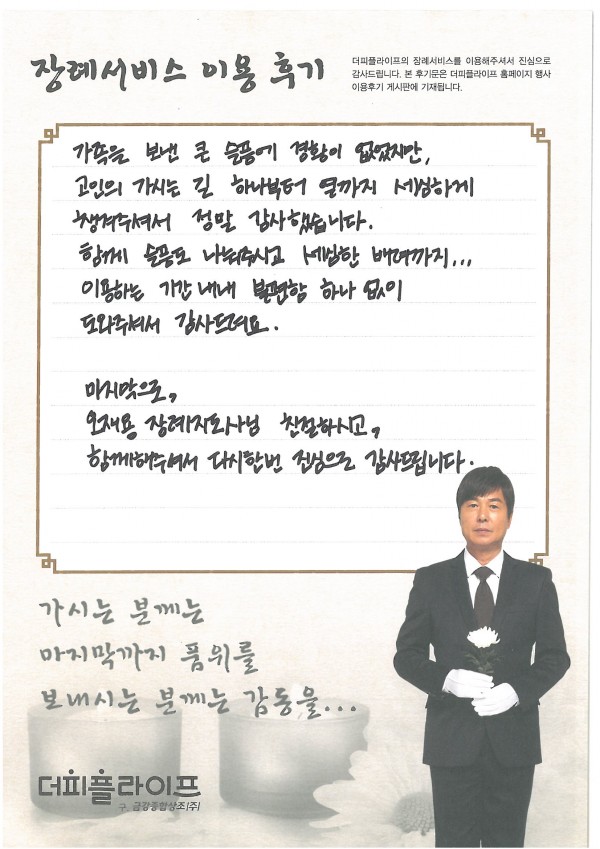 장례서비스 이용 후기
더피플라이프의 장례서비스를 이용해주셔서 진심으로
감사드립니다. 본 후기문은 더피플라이프 홈페이지 행사
이용후기 게시판에 기재됩니다.
가족을 보낸 큰 슬픔에 경황이 없었지만,
고인의 가시는 길 하나부터 열까지 세심하게
챙겨주셔서 정말 감사했습니다.
함께 슬픔도 나눠주시고 세심한 배려까지...
이용하는 기간 내내 불편함 하나 없이
도와주셔서 감사드려요.
마지막으로,
오재용 장례지도사님 친절하시고,
함께해주셔서 다시한번 진심으로 감사드립니다.
가시는 분께는
마지막까지 품위를
보내시는 분께는 감동을...
더피플라이프
구. 금강종합상조(주)